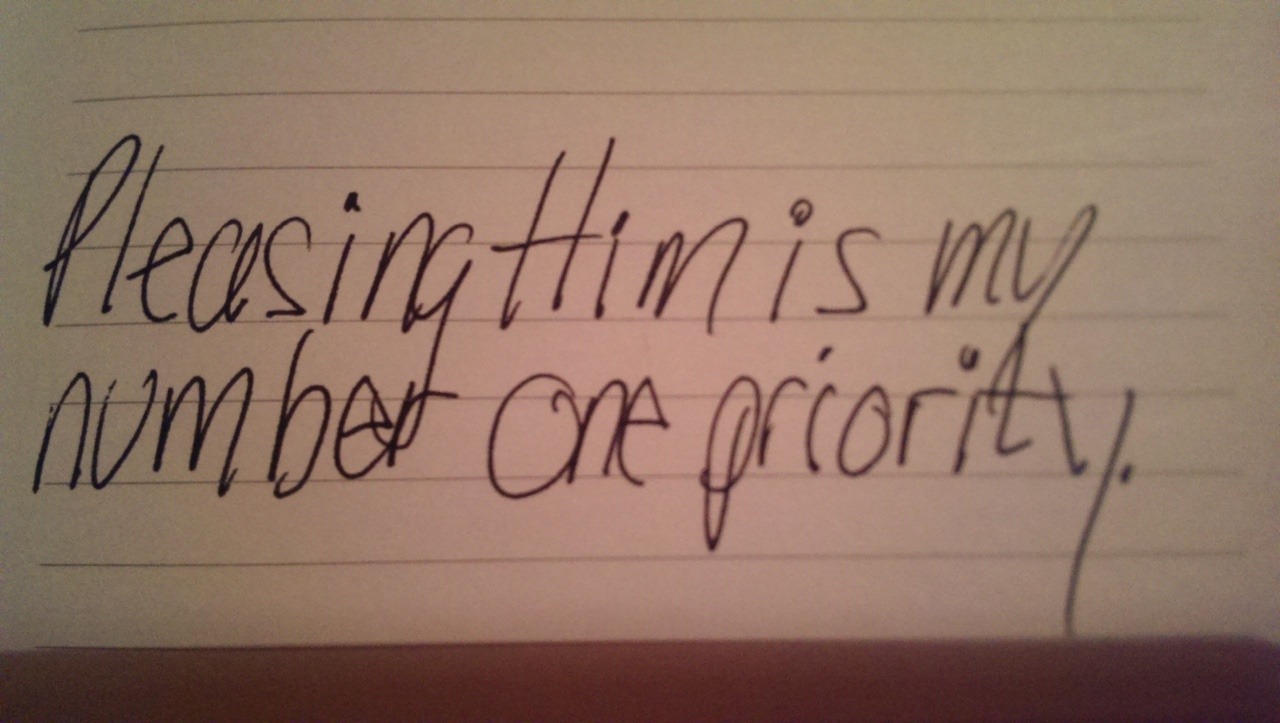 Pleasing Him is my
number one priority.